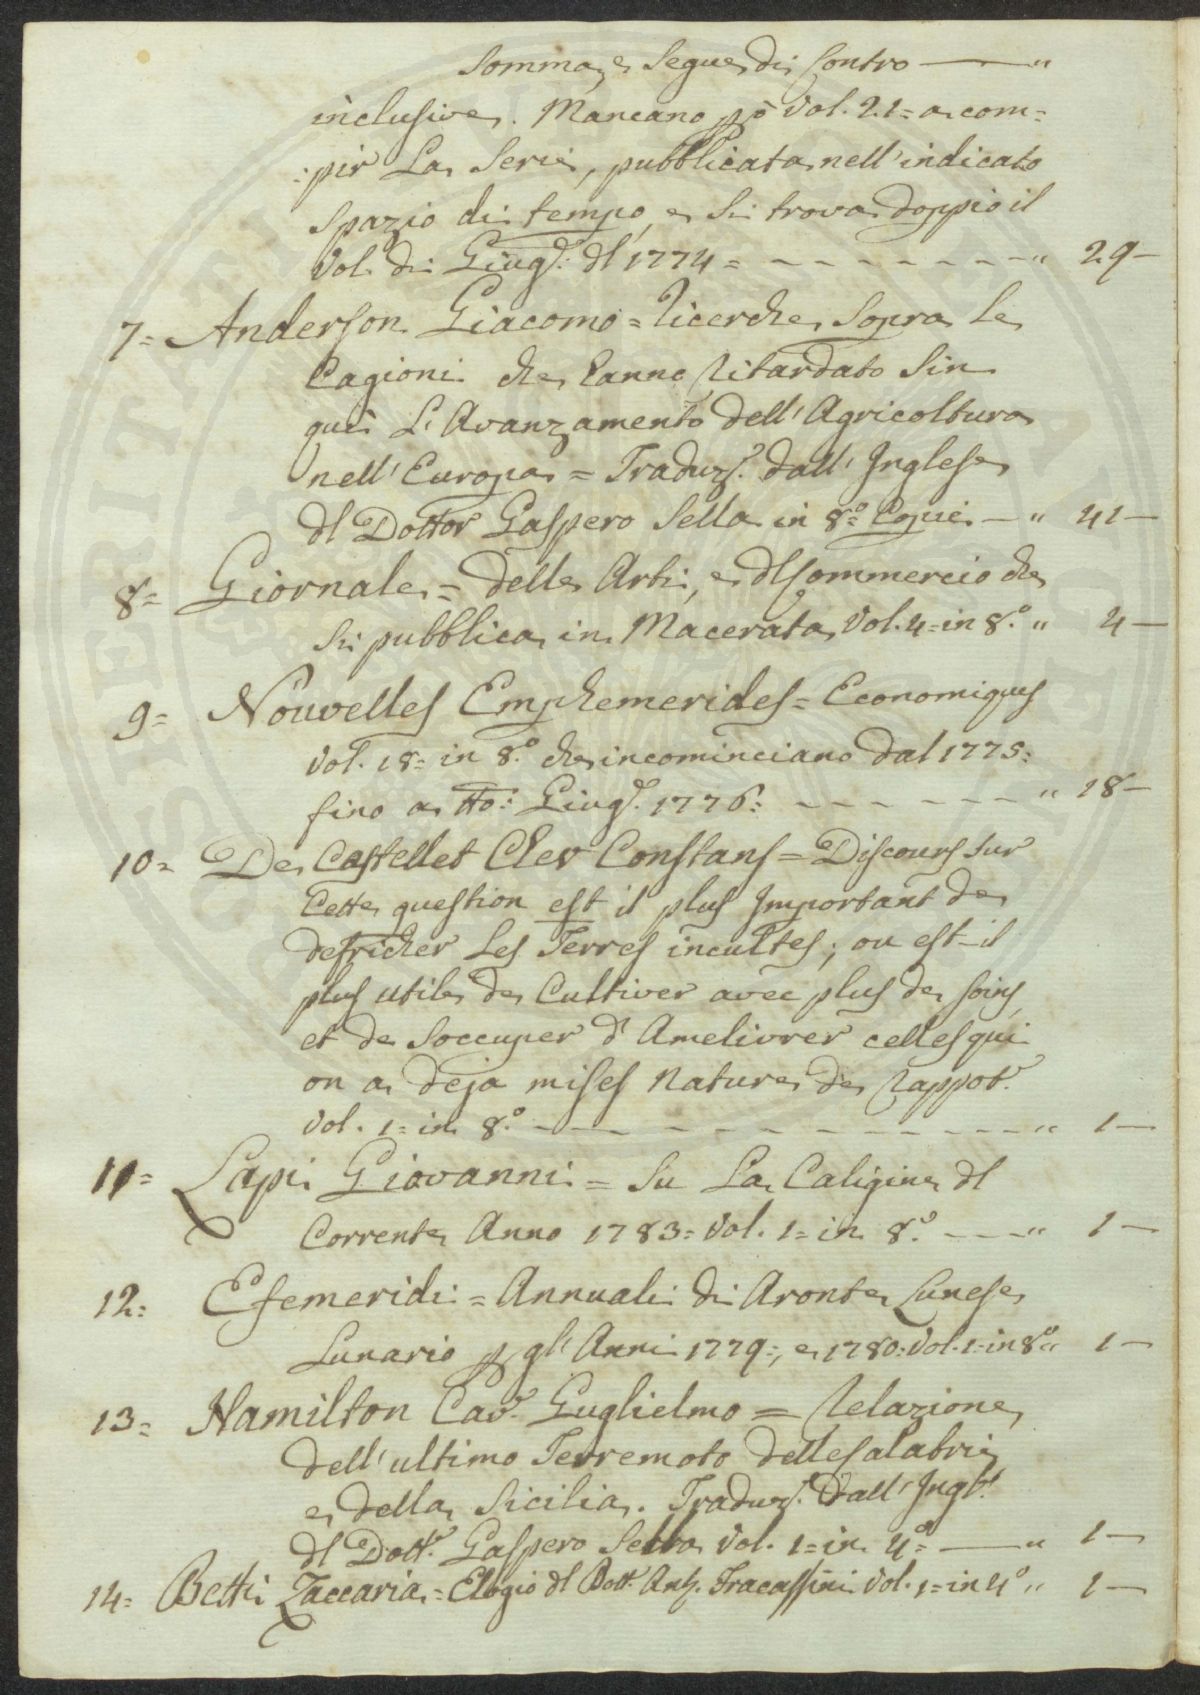 Somma, e Segue di Contro — "
inclusive. Mancano pò Vol. 21= a com=
=pir La Serie, pubblicata nell' indicato
spazio di tempo, e Si trova doppio il
Vol. di Giugº: dl 1774 = — — — " 29 —
7= Anderson Giacomo = Ricerche Sopra Le
Cagioni che hanno Ritardato Sin
quì L'Avanzamento dell' Agricoltura
nell' Europa = Traduz.e dall' Inglese
dl Dottor Gaspero Sella in 8º= Copie — " 41 —
8= Giornale = delle Arti, e dl Commercio che
Si pubblica in Macerata Vol. 4= in 8.º " 4 —
9= Nouvelles Emphemerides = Economiques
Vol. 18= in 8.º che incominciano dal 1775:
fino a tto: Giugº. 1776: — — — " 18 —
10= De Castellet Clev Constans = Discours sur
Cette question est il plus Important de
defricher Les Terres incultes; ou est-il
plus utile de Cultiver avec plus de soins,
et de Soccuper d'Ameliorer celles qui
on a deja mises Nature de Rappot.
Vol. 1= in 8.º — — — " 1 —
11= Lapi Giovanni = Su La Caligine dl
Corrente Anno 1783= Vol. 1= in 8.º — — " 1 —
12= Efemeridi = Annuali di Aronte Lunese
Lunario p gl' Anni 1779=, e 1780: Vol. 1= in 8º " 1 —
13= Hamilton Cav.r Guglielmo = Relazione
dell' ultimo Terremoto delle Calabrie
e della Sicilia. Traduz.e dall' Ingl.e
dl Dott.r Gaspero Sella Vol. 1= in 4º= — " 1 —
14= Betti Zaccaria = Elogio dl Dott.r Ant.º Fracassini Vol. 1= in 4º " 1 —